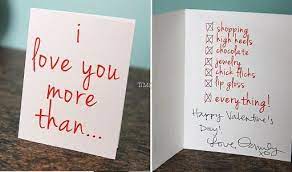 i
love you
more
than...
shopping
high heels
chocolate
jewelry
chick flicks
lip gloss
everything!
Happy Valentine's
Day!
Love,